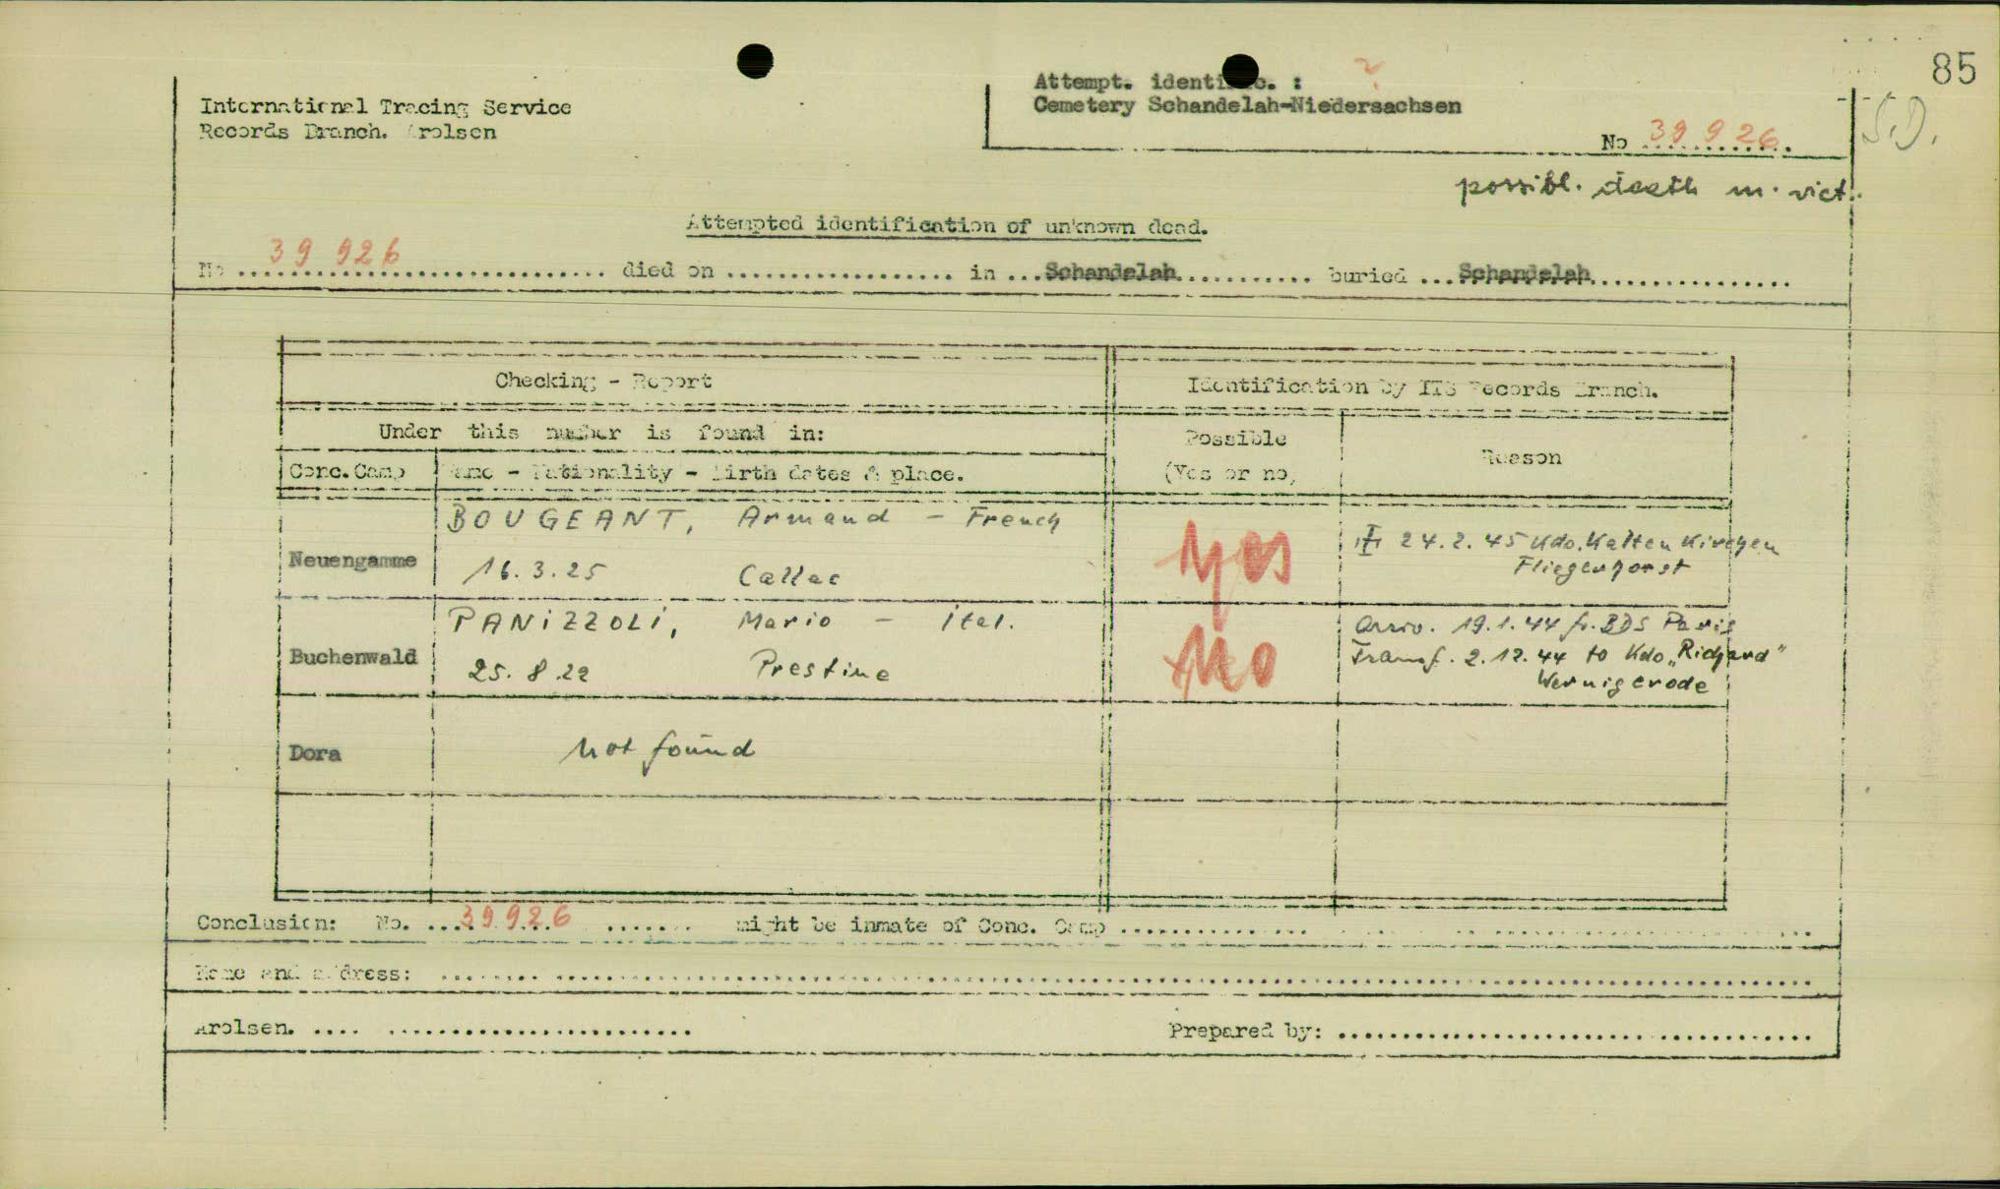 85
Attempt. identific. :
International Tracing Service
Cemetery Schandelah-Niedersachsen
Records Branch. Arolsen
No 39 926
S.D.
possibl. death m. vict.
Attempted identification of unknown dead.
No 39 926 died on .................. in ...Schandelah........... buried ...Schandelah................
Checking - Report
Identification by ITS Records Branch.
Under this number is found in:
Possible
(Yes or no)
Reason
Conc. Camp
Name - Nationality - Birth dates & place.
Neuengamme
BOUGEANT, Armand - French
16.3.25 Callac
yes
24.2.45 Kdo. Kaltenkirchen
Fliegerhorst
Buchenwald
PANIZZOLI, Mario - Ital.
25.8.22 Prestine
No
Arriv. 19.1.44 fr. BDS Paris
Transf. 2.12.44 to Kdo „Richard"
Wernigerode
Dora
not found
Conclusion: No. ...39926 ....... might be inmate of Conc. Camp ...............
Name and address: ........................
Arolsen. .... .......................
Prepared by: ........................................